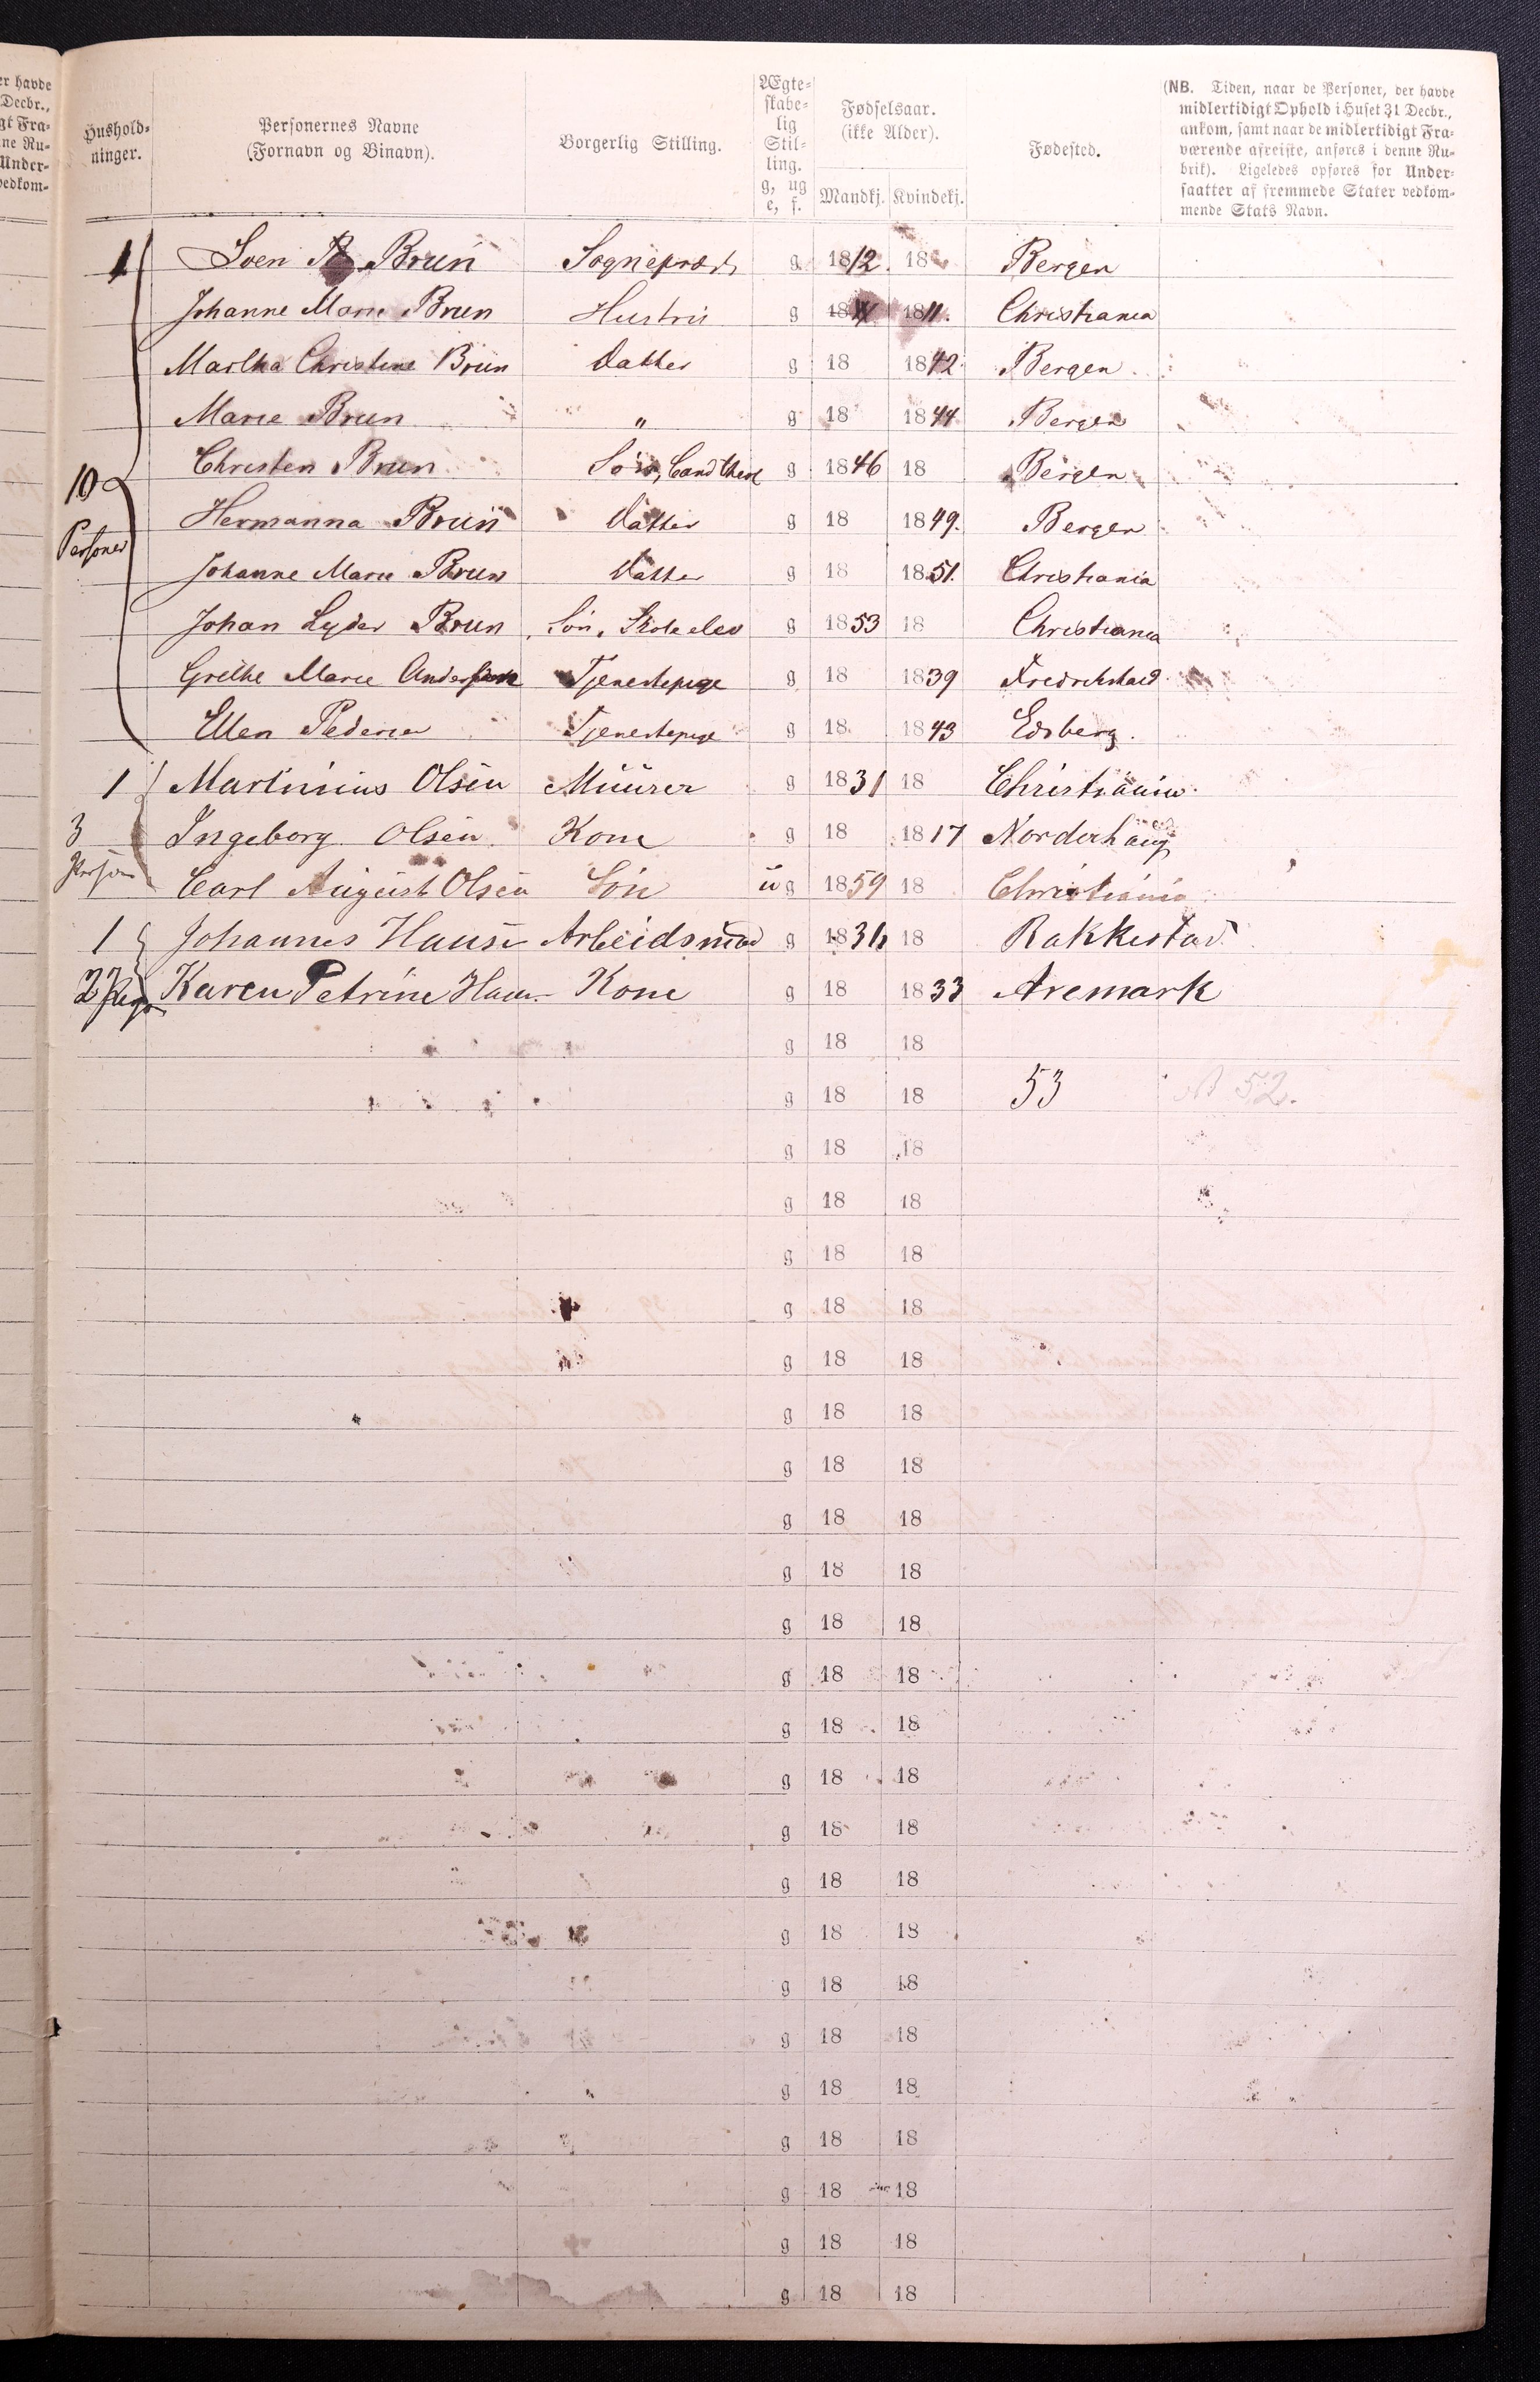 er havde
Decbr.,
gt Fra-
ne Ru-
Under-
vedkom-
Hushold-
ninger.
Personernes Navne
(Fornavn og Binavn).
Borgerlig Stilling.
Ægte-
skabe-
lig
Stil-
ling.
g, ug
e, f.
Fødselsaar.
(ikke Alder).
Mandkj. Kvindekj.
Fødested.
(NB. Tiden, naar de Personer, der havde
midlertidigt Ophold i Huset 31 Decbr.,
ankom, samt naar de midlertidigt Fra-
værende afreiste, anføres i denne Ru-
brik). Ligeledes opføres for Under-
saatter af fremmede Stater vedkom-
mende Stats Navn.
1 Sven Brun Sognepræst g 1812. 18 Bergen
Johanne Marie Brun Hustru g 18 1811. Christiania
Martha Christine Brun Datter g 18 1842. Bergen.
Marie Brun " g 18 1844 Bergen
Christen Brun Søn, Cand theol g 1846 18 Bergen
10
Personer
Hermanna Brun Datter g 18 1849. Bergen
Johanne Marie Brun Datter g 18 1851. Christiania
Johan Lyder Brun Søn, Skoleelev g 1853 18 Christiania
Grethe Marie Andersen Tjenestepige g 18 1839 Fredrikstad
Ellen Pedersen Tjenestepige g 18 1843 Edsberg.
1 Martinius Olsen Muurer g 1831 18 Christiania
3 Ingeborg Olsen Kone g 18 1817 Norderhaug
Person Carl August Olsen Søn ug 1859 18 Christiania
1 Johannes Hansen Arbeidsmad g 1831 18 Rakkestad.
2 Karen Petrine Hansen Kone g 18 1833 Aremark
g 18 18
g 18 18 53 52.
g 18 18
g 18 18
g 18 18
g 18 18
g 18 18
g 18 18
g 18 18
g 18 18
g 18 18
g 18 18
g 18 18
g 18 18
g 18 18
g 18 18
g 18 18
g 18 18
g 18 18
g 18 18
g 18 18
g 18 18
g 18 18
g 18 18
g 18 18